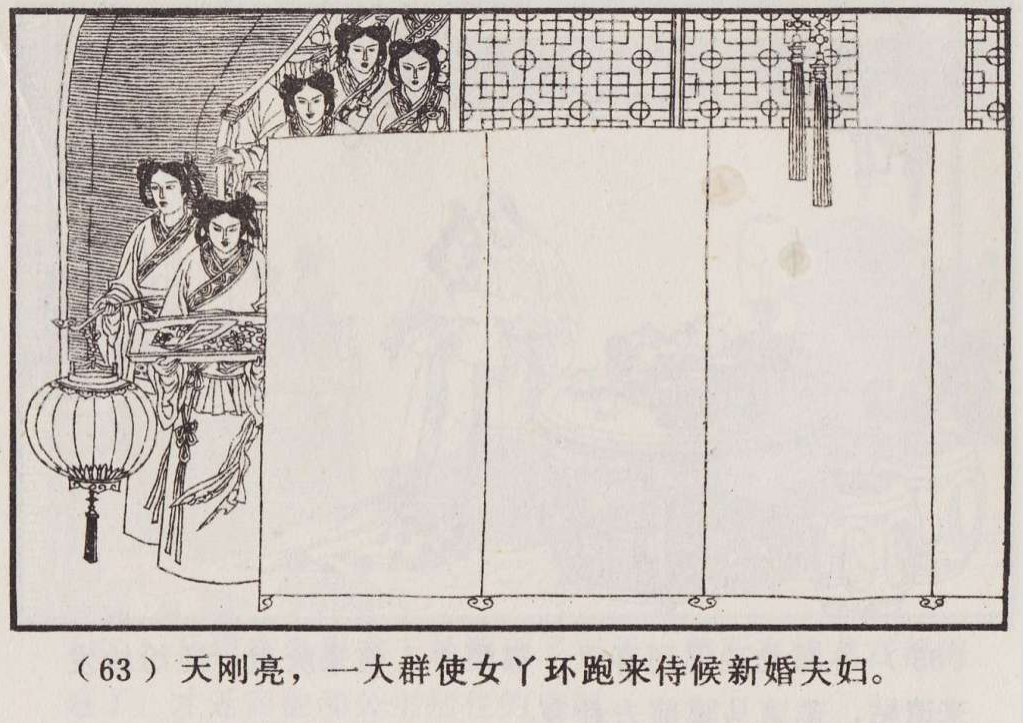 （63）天刚亮，一大群使女丫环跑来侍候新婚夫妇。